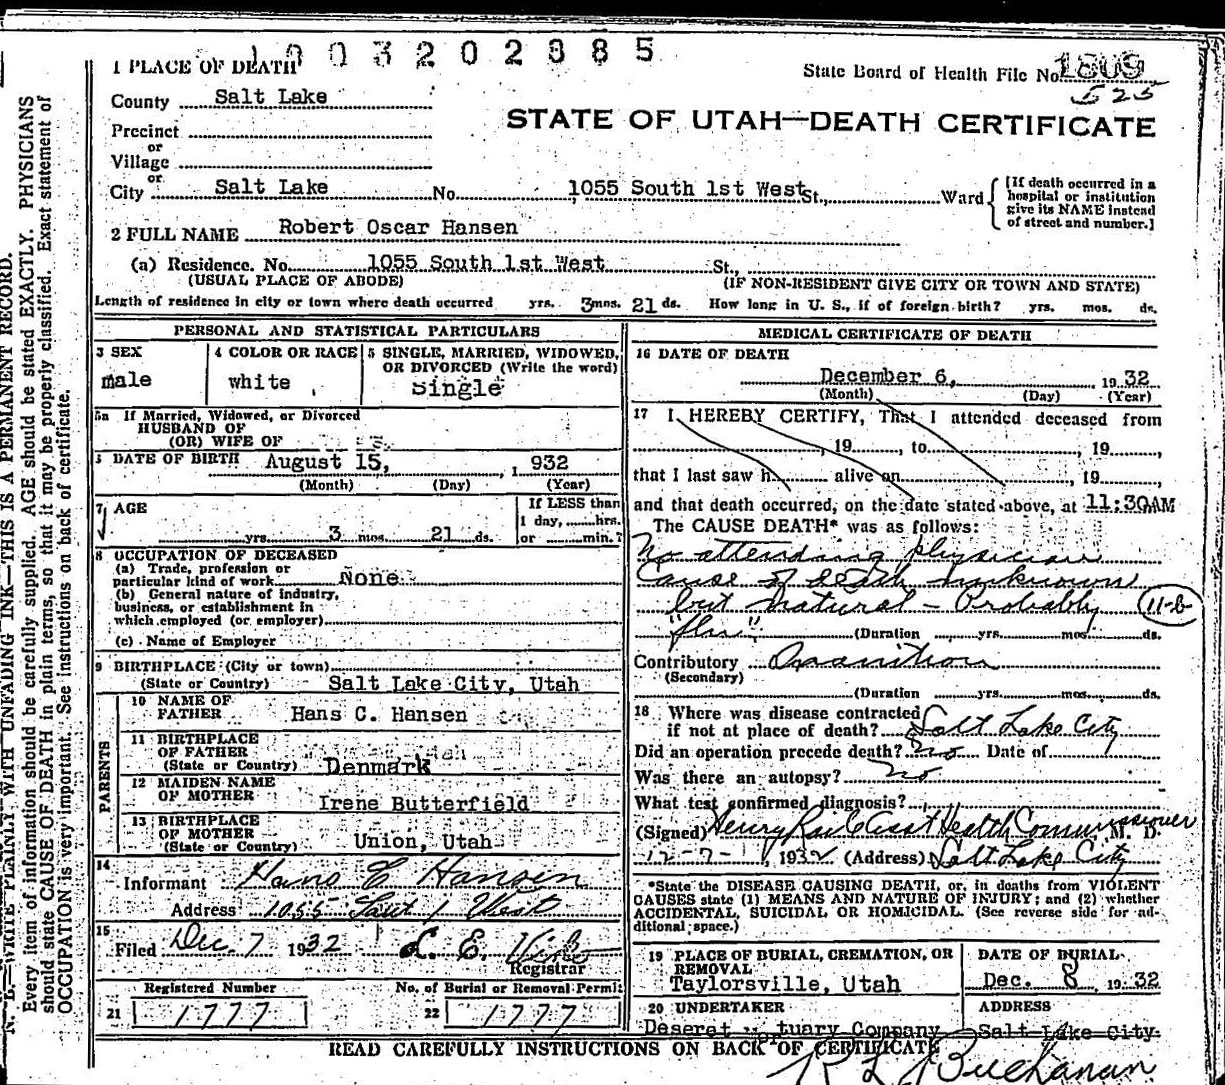 1003202885
1 PLACE OF DEATH
State Board of Health File No. 1809
County Salt Lake
STATE OF UTAH—DEATH CERTIFICATE
Precinct
or
Village
or
City Salt Lake No. 1055 South 1st West St., Ward
[If death occurred in a
hospital or institution
give its NAME instead
of street and number.]
2 FULL NAME Robert Oscar Hansen
(a) Residence. No. 1055 South 1st West St.,
(USUAL PLACE OF ABODE) (IF NON-RESIDENT GIVE CITY OR TOWN AND STATE)
Length of residence in city or town where death occurred yrs. 3 mos. 21 ds. How long in U. S., if of foreign birth? yrs. mos. ds.
PERSONAL AND STATISTICAL PARTICULARS
3 SEX
male
4 COLOR OR RACE
white
5 SINGLE, MARRIED, WIDOWED,
OR DIVORCED (Write the word)
Single
5a If Married, Widowed, or Divorced
HUSBAND OF
(OR) WIFE OF
DATE OF BIRTH August 15, 1932
(Month) (Day) (Year)
7 AGE
If LESS than
1 day, hrs.
yrs. 3 mos. 21 ds. or min.?
8 OCCUPATION OF DECEASED
(a) Trade, profession or
particular kind of work None
(b) General nature of industry,
business, or establishment in
which employed (or employer)
(c) Name of Employer
9 BIRTHPLACE (City or town)
(State or Country) Salt Lake City, Utah
PARENTS
10 NAME OF
FATHER Hans C. Hansen
11 BIRTHPLACE
OF FATHER
(State or Country) Denmark
12 MAIDEN NAME
OF MOTHER Irene Butterfield
13 BIRTHPLACE
OF MOTHER
(State or Country) Union, Utah
14
Informant Hans C Hansen
Address 1055 1 West
15
Filed Dec. 7 1932 L. E.
Registrar
Registered Number No. of Burial or Removal Permit
21 1777 22 1777
MEDICAL CERTIFICATE OF DEATH
16 DATE OF DEATH
December 6, 1932
(Month) (Day) (Year)
17 I HEREBY CERTIFY, That I attended deceased from
, 19 , to , 19 ,
that I last saw h alive on , 19 ,
and that death occurred, on the date stated above, at 11:30AM
The CAUSE DEATH* was as follows:
No attending physician
Cause of death unknown
but natural - Probably 11-b
"flu" (Duration yrs. mos. ds.
Contributory Inanition
(Secondary)
(Duration yrs. mos. ds.
18 Where was disease contracted
if not at place of death? Salt Lake City
Did an operation precede death? no Date of
Was there an autopsy? no
What test confirmed diagnosis?
(Signed) Henry Asst Health Commissioner M. D.
12-7-, 1932 (Address) Salt Lake City
*State the DISEASE CAUSING DEATH, or, in deaths from VIOLENT
CAUSES state (1) MEANS AND NATURE OF INJURY; and (2) whether
ACCIDENTAL, SUICIDAL OR HOMICIDAL. (See reverse side for ad-
ditional space.)
19 PLACE OF BURIAL, CREMATION, OR
REMOVAL
Taylorsville, Utah
DATE OF BURIAL
Dec. 8 1932
20 UNDERTAKER
Deseret Mortuary Company
ADDRESS
Salt Lake City
READ CAREFULLY INSTRUCTIONS ON BACK OF CERTIFICATE
R L Buchanan
N. B.—WRITE PLAINLY WITH UNFADING INK—THIS IS A PERMANENT RECORD.
Every item of information should be carefully supplied. AGE should be stated EXACTLY. PHYSICIANS
should state CAUSE OF DEATH in plain terms, so that it may be properly classified. Exact statement of
OCCUPATION is very important. See instructions on back of certificate.